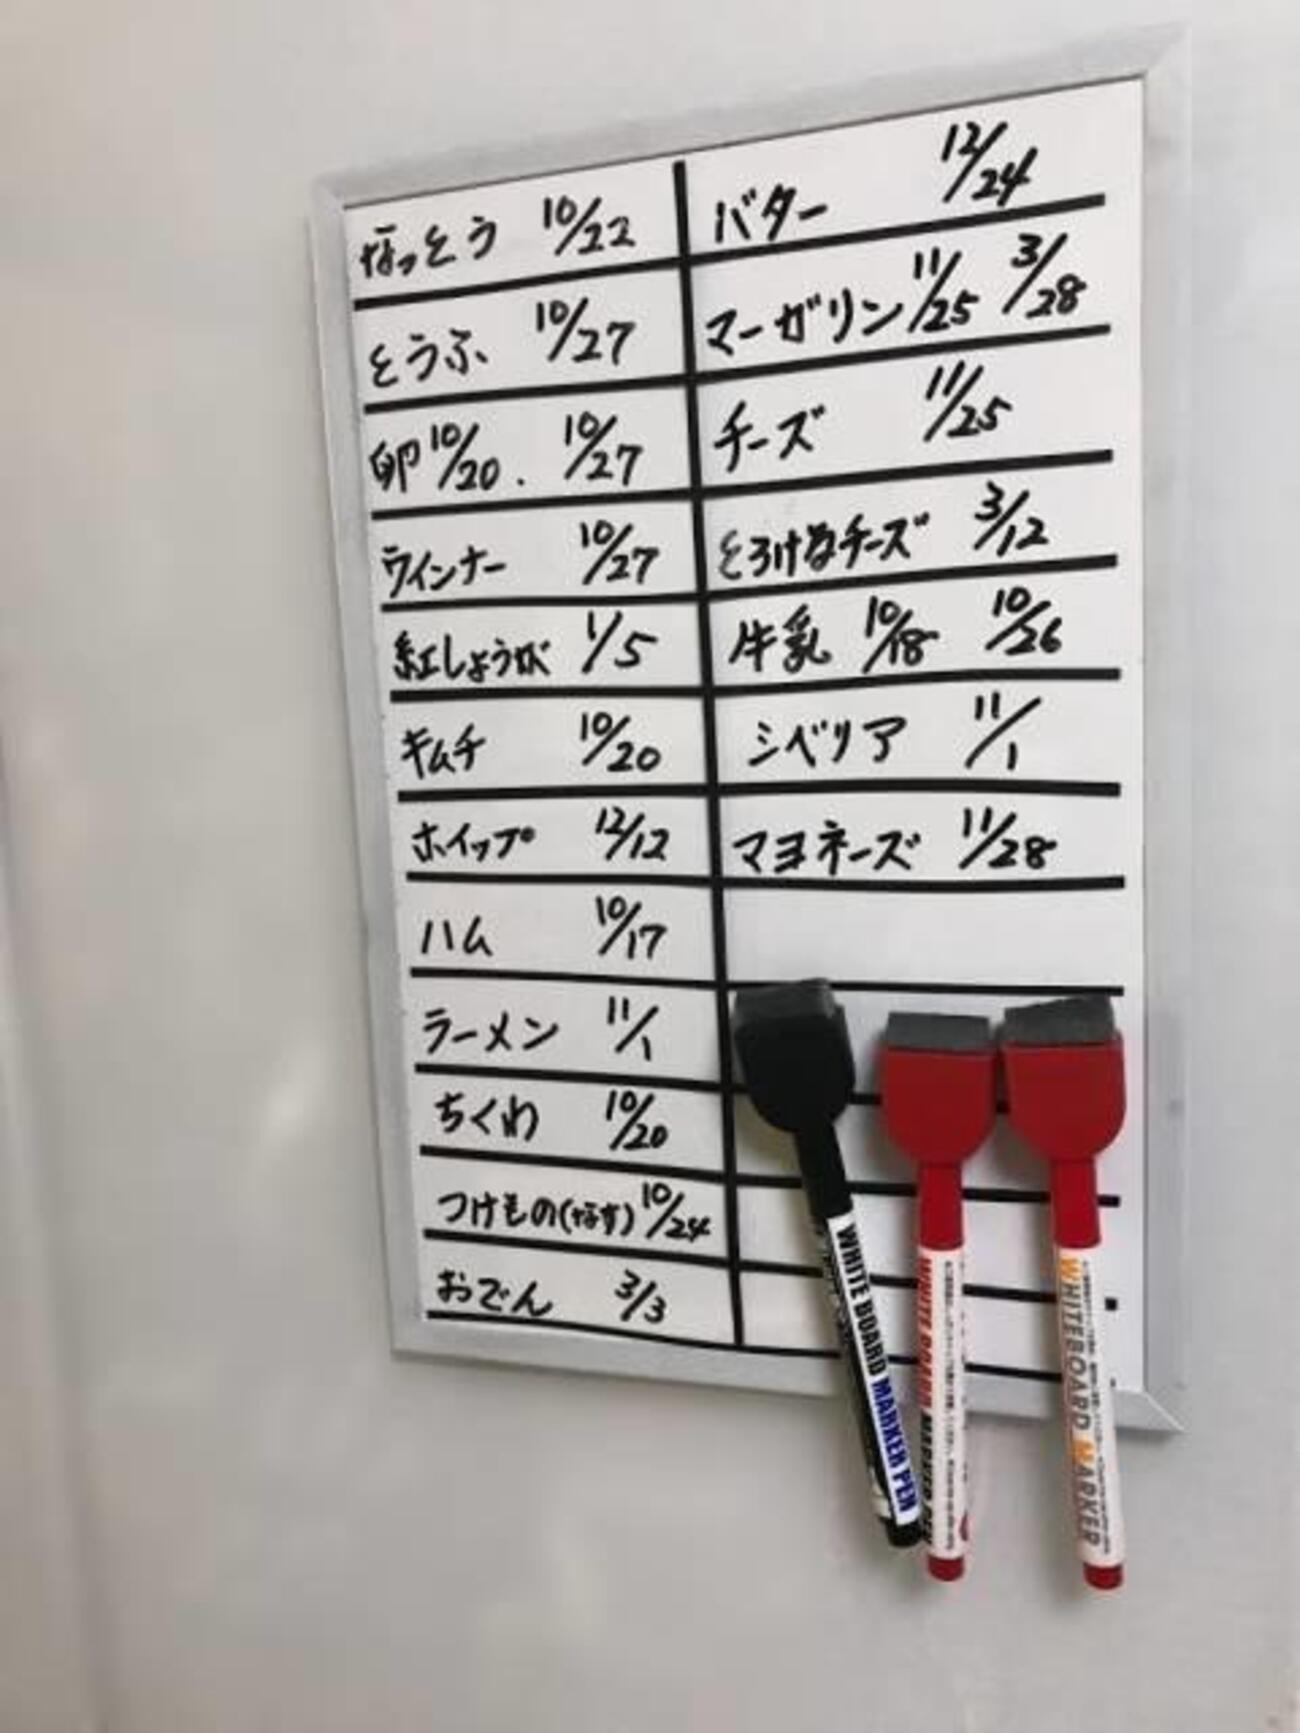 なっとう 10/22
とうふ 10/27
卵 10/20. 10/27
ウインナー 10/27
紅しょうが 1/5
キムチ 10/20
ホイップ 12/12
ハム 10/17
ラーメン 11/1
ちくわ 10/20
つけもの(なす) 10/24
おでん 3/3
バター 12/24
マーガリン 11/25 3/28
チーズ 11/25
とろけるチーズ 3/12
牛乳 10/18 10/26
シベリア 11/1
マヨネーズ 11/28
WHITE BOARD MARKER PEN
WHITE BOARD MARKER PEN
WHITEBOARD MARKER